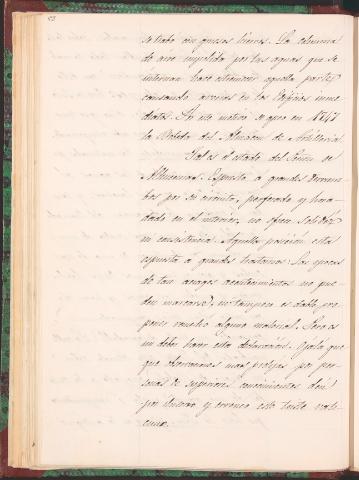 53
se trabó con gruesos hierros. La columna
de aire impelida por las aguas que se
internan hace estremecer aquella parte
causando averias en los edificios inme
diatos. Por este motivo se cayo en 1847
la Boveda del Almacen de Artilleria
Tal es el estado del Peñon de
Alhucemas. Espuesto a grandes derrum
bes por su circuito, perforado y hora
dado en el interior, no ofrece solidez
ni consistencia. Aquella posicion esta
espuesta a grandes trastornos: las epocas
de tan aciagos acontecimientos no pue
den marcarse, ni tampoco es dable pro
poner remedio alguno material. Pero es
un deber hacer esta declaracion. Ojala que
que observaciones mas prolijas por per
sonas de superiores conocimientos den
por ilusorio y erroneo este triste vati
cinio.